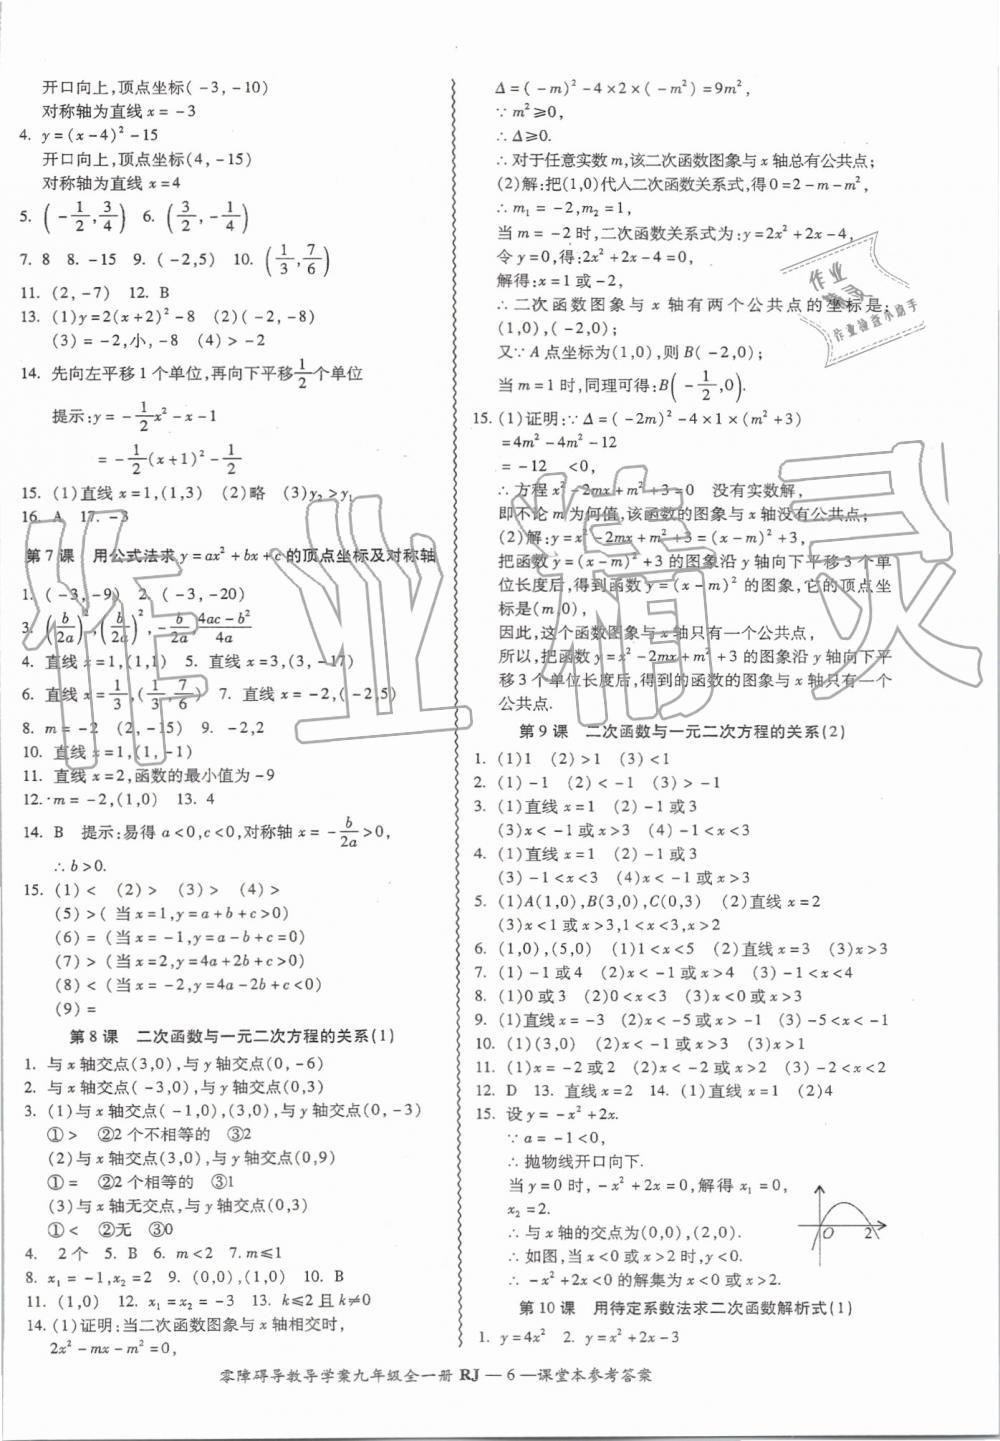 开口向上,顶点坐标(-3,-10)
对称轴为直线x=-3
4. y=(x-4)²-15
开口向上,顶点坐标(4,-15)
对称轴为直线x=4
5. (-1/2,3/4) 6. (3/2,-1/4)
7. 8 8. -15 9. (-2,5) 10. (1/3,7/6)
11. (2,-7) 12. B
13. (1)y=2(x+2)²-8 (2)(-2,-8)
(3)=-2,小,-8 (4)>-2
14. 先向左平移1个单位,再向下平移1/2个单位
提示:y=-1/2x²-x-1
=-1/2(x+1)²-1/2
15. (1)直线x=1,(1,3) (2)略 (3)y₂>y₁
16. A 17. -3
第7课 用公式法求y=ax²+bx+c的顶点坐标及对称轴
1. (-3,-9) 2. (-3,-20)
3. (b/2a)²,(b/2a)²,-b/2a,(4ac-b²)/4a
4. 直线x=1,(1,1) 5. 直线x=3,(3,-17)
6. 直线x=1/3,(1/3,7/6) 7. 直线x=-2,(-2,5)
8. m=-2 (2,-15) 9. -2
10. 直线x=1,(1,-1)
11. 直线x=2,函数的最小值为-9
12. m=-2,(1,0) 13. 4
14. B 提示:易得a<0,c<0,对称轴x=-b/2a>0,
∴b>0.
15. (1)< (2)> (3)> (4)>
(5)>(当x=1,y=a+b+c>0)
(6)=(当x=-1,y=a-b+c=0)
(7)>(当x=2,y=4a+2b+c>0)
(8)<(当x=-2,y=4a-2b+c<0)
(9)=
第8课 二次函数与一元二次方程的关系(1)
1. 与x轴交点(3,0),与y轴交点(0,-6)
2. 与x轴交点(-3,0),与y轴交点(0,3)
3. (1)与x轴交点(-1,0),(3,0),与y轴交点(0,-3)
①> ②2个不相等的 ③2
(2)与x轴交点(3,0),与y轴交点(0,9)
①= ②2个相等的 ③1
(3)与x轴无交点,与y轴交点(0,3)
①< ②无 ③0
4. 2个 5. B 6. m<2 7. m≤1
8. x₁=-1,x₂=2 9. (0,0),(1,0) 10. B
11. (1,0) 12. x₁=x₂=-3 13. k≤2且k≠0
14. (1)证明:当二次函数图象与x轴相交时,
2x²-mx-m²=0,
Δ=(-m)²-4×2×(-m²)=9m²,
∵m²≥0,
∴Δ≥0.
∴对于任意实数m,该二次函数图象与x轴总有公共点;
(2)解:把(1,0)代入二次函数关系式,得0=2-m-m²,
∴m₁=-2,m₂=1,
当m=-2时,二次函数关系式为:y=2x²+2x-4,
令y=0,得:2x²+2x-4=0,
解得:x=1或-2,
∴二次函数图象与x轴有两个公共点的坐标是:
(1,0),(-2,0);
又∵A点坐标为(1,0),则B(-2,0);
当m=1时,同理可得:B(-1/2,0).
15. (1)证明:∵Δ=(-2m)²-4×1×(m²+3)
=4m²-4m²-12
=-12 <0,
∴方程x²-2mx+m²+3=0 没有实数解,
即不论m为何值,该函数的图象与x轴没有公共点;
(2)解:y=x²-2mx+m²+3=(x-m)²+3,
把函数y=(x-m)²+3的图象沿y轴向下平移3个单
位长度后,得到函数y=(x-m)²的图象,它的顶点坐
标是(m,0),
因此,这个函数图象与x轴只有一个公共点,
所以,把函数y=x²-2mx+m²+3的图象沿y轴向下平
移3个单位长度后,得到的函数的图象与x轴只有一个
公共点.
第9课 二次函数与一元二次方程的关系(2)
1. (1)1 (2)>1 (3)<1
2. (1)-1 (2)<-1 (3)>-1
3. (1)直线x=1 (2)-1或3
(3)x<-1或x>3 (4)-1<x<3
4. (1)直线x=1 (2)-1或3
(3)-1<x<3 (4)x<-1或x>3
5. (1)A(1,0),B(3,0),C(0,3) (2)直线x=2
(3)x<1或x>3,1<x<3,x>2
6. (1,0),(5,0) (1)1<x<5 (2)直线x=3 (3)x>3
7. (1)-1或4 (2)x<-1或x>4 (3)-1<x<4
8. (1)0或3 (2)0<x<3 (3)x<0或x>3
9. (1)直线x=-3 (2)x<-5或x>-1 (3)-5<x<-1
10. (1)(3,0) (2)-1<x<3
11. (1)x=-2或2 (2)x<-2或x>2 (3)-2<x<2
12. D 13. 直线x=2 14. (1)直线x=1 (2)4
15. 设y=-x²+2x.
∵a=-1<0,
∴抛物线开口向下.
当y=0时,-x²+2x=0,解得x₁=0,
x₂=2.
∴与x轴的交点为(0,0),(2,0).
∴如图,当x<0或x>2时,y<0.
∴-x²+2x<0的解集为x<0或x>2.
O 2
第10课 用待定系数法求二次函数解析式(1)
1. y=4x² 2. y=x²+2x-3
零障碍导教导学案九年级全一册 RJ — 6 —课堂本参考答案
作业精灵
作业
精灵
作业检查小助手